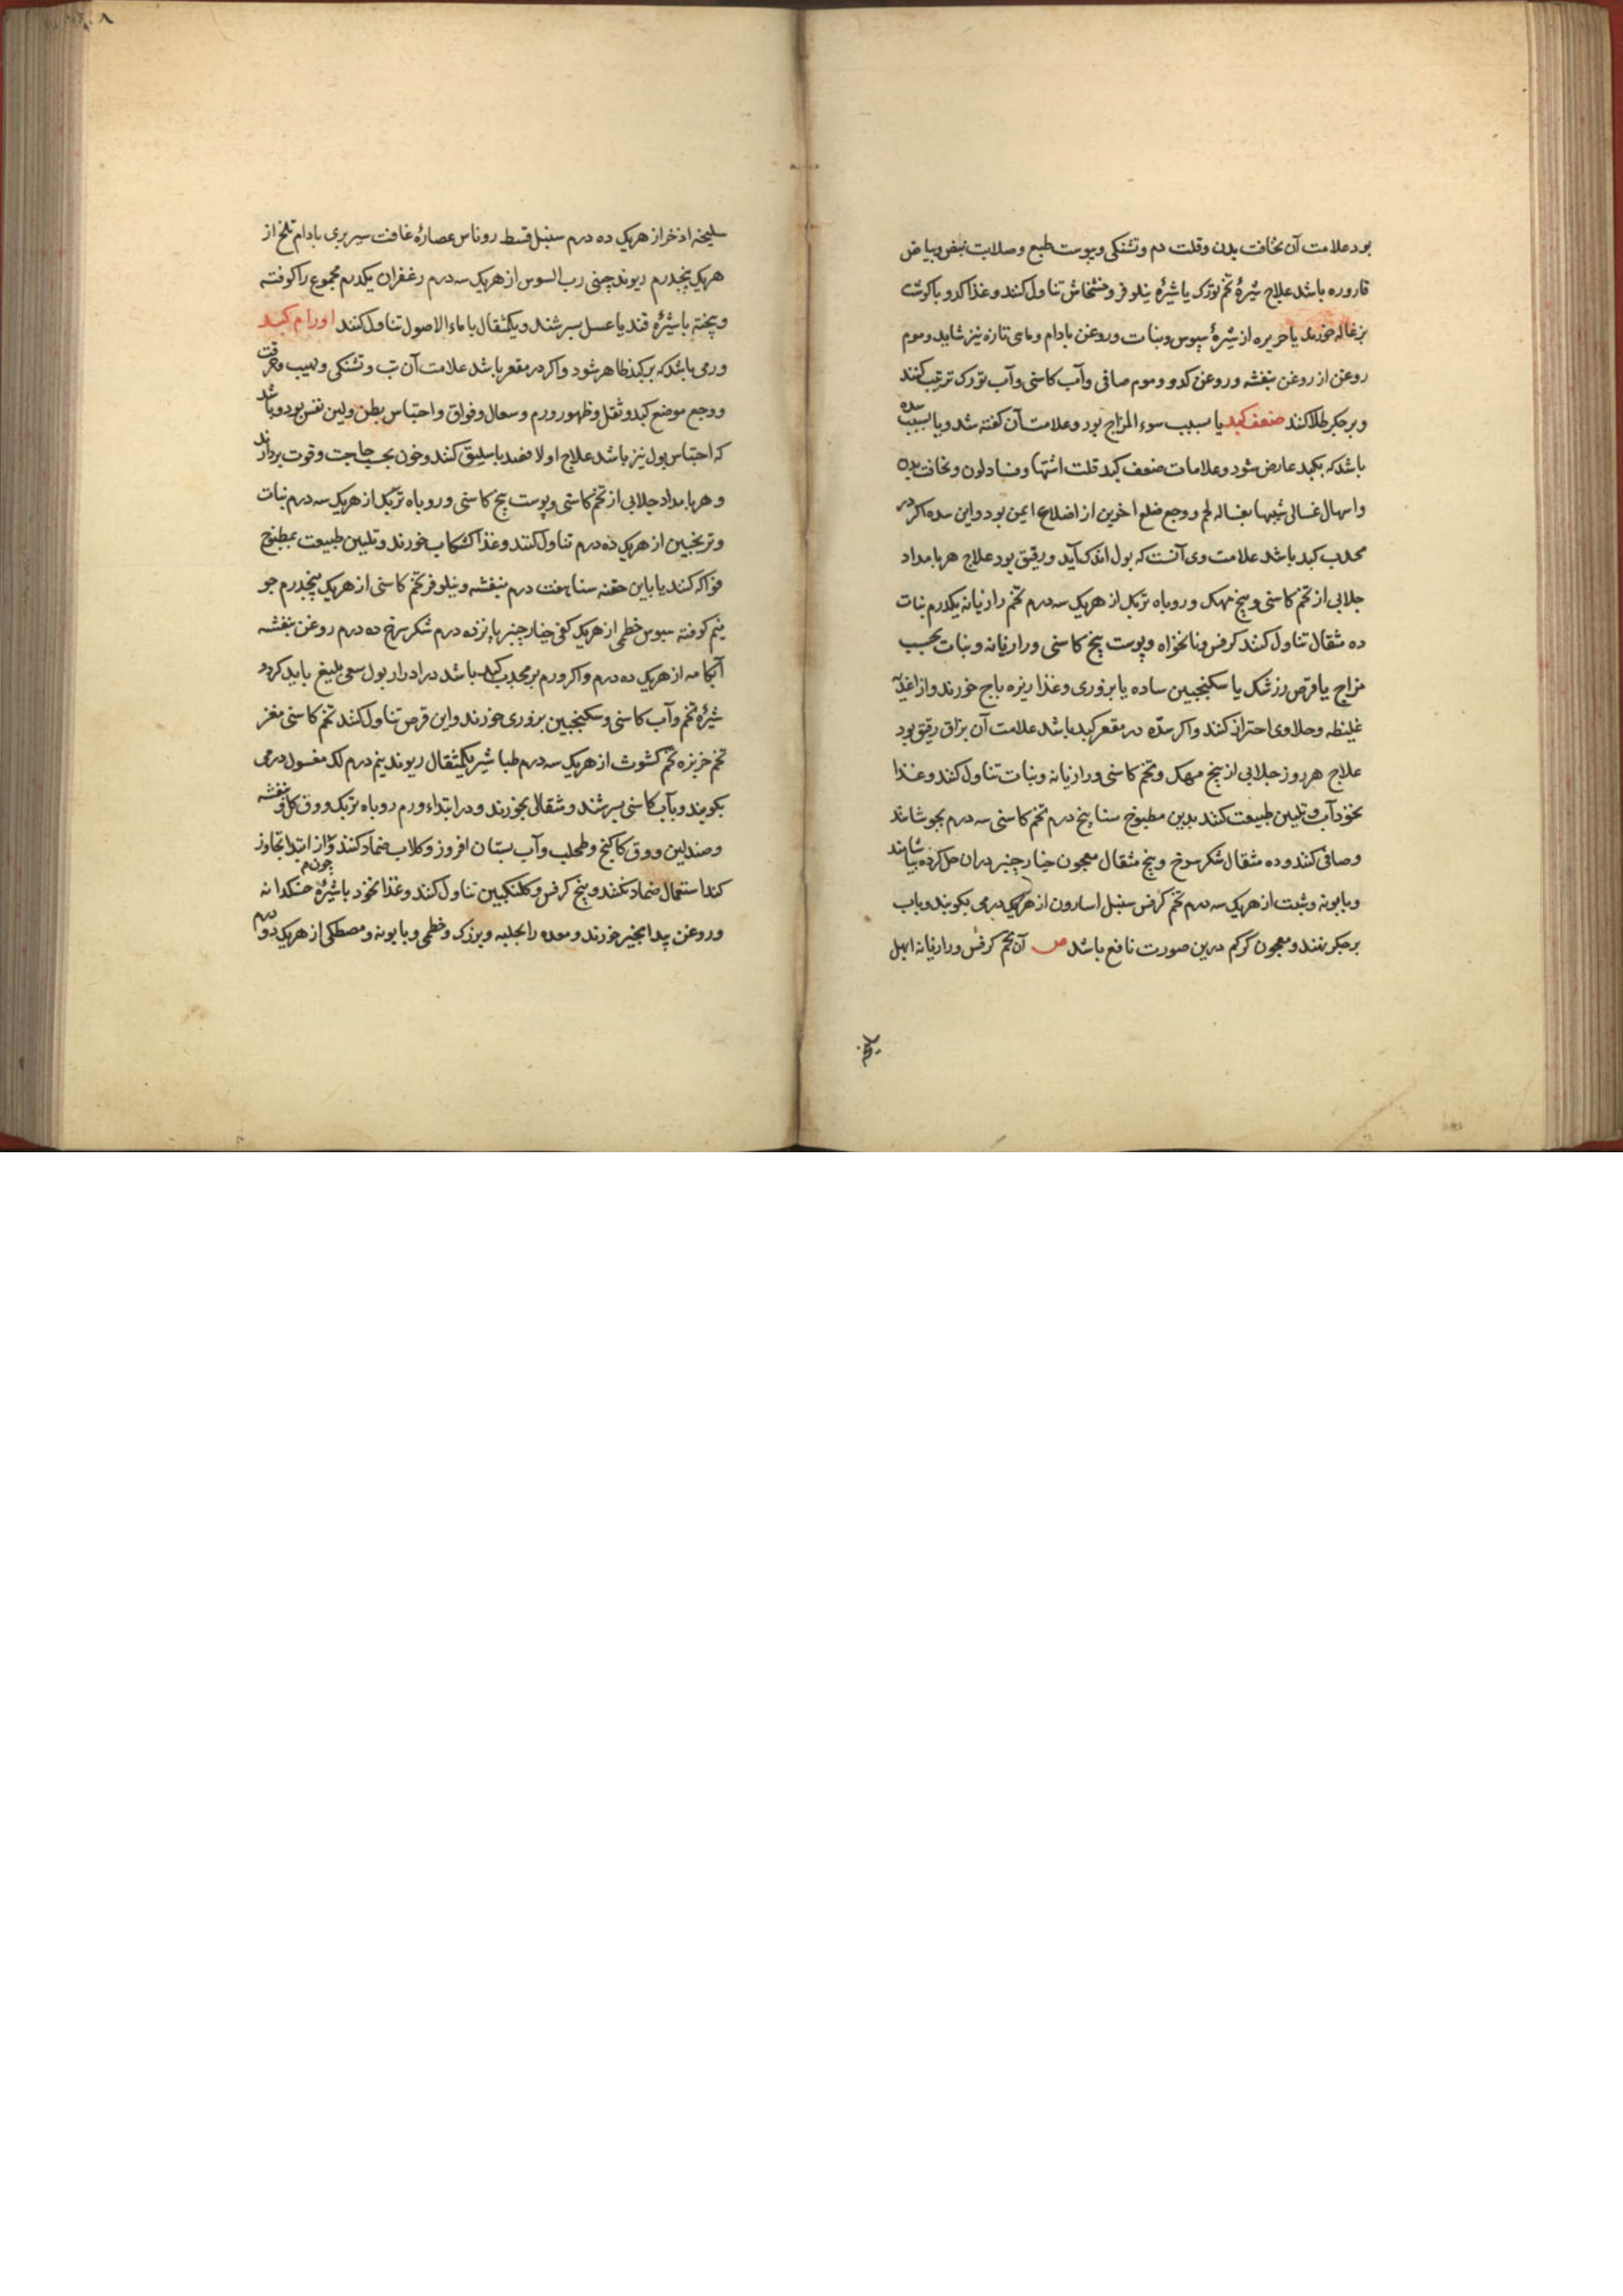 بود علامت آن نحافت بدن و قلت دم و تشنکی و یبوست طبع و صلابت نبض و بیاض
قاروره باشد علاج شیرهٔ تخم تورک یا شیرهٔ نیلوفر و خشخاش تناول کنند و غذا کدو با کوشت
بزغاله خورند یا حریره از شیرهٔ سبوس و نبات و روغن بادام و ماهی تازه نیز شاید و موم
روغن از روغن بنفشه و روغن کدو و موم صافی و آب کاسنی و آب تورک ترتیب کنند
و بر جکر طلا کنند ضعف کبد یا بسبب سوء المزاج بود و علامت آن کفته شد و یا بسبب سده
باشد که بکبد عارض شود و علامات ضعف کبد قلت اشتها و فساد لون و نحافت بدن
و اسهال غسالی شبیها بغساله لحم و وجع ضلع اخرین از اضلاع ایمن بود و این سده اکر در
محدب کبد باشد علامت وی آنست که بول اندک آید و رقیق بود علاج هر بامداد
جلابی از تخم کاسنی و بیخ مهک و روباه تربک از هریک سه درم تخم رازیانه یکدرم نبات
ده مثقال تناول کنند کرفس و نانخواه و پوست بیخ کاسنی و رازیانه و نبات بحسب
مزاج یا قرص زرشک یا سکنجبین ساده یا بزوری و غذا زیره باج خورند و از اغذیهٔ
غلیظه و حلاوی احتراز کنند و اکر سدّه در مقعر کبد باشد علامت آن بزاق رقیق بود
علاج هر روز جلابی از بیخ مهک و تخم کاسنی و رازیانه و نبات تناول کنند و غذا
نخودآب و تلیین طبیعت کنند بدین مطبوخ سنا پنج درم تخم کاسنی سه درم بجوشانند
و صافی کنند و ده مثقال شکر سرخ و پنج مثقال معجون خیارچنبر دران حل کرده بیاشامند
و بابونه و شبت از هریک سه درم تخم کرفس سنبل اسارون از هریک درمی بکوبند و باب
بر جکر نهند و معجون کرکم درین صورت نافع باشد ص آن تخم کرفس و رازیانه ابهل
سلیخه
سلیخه اذخر از هریک ده درم سنبل قسط روناس عصارهٔ غافت بربری بادام تلخ از
هریک پنجدرم ریوند چینی رب السوس از هریک سه درم زعفران یکدرم مجموع را کوفته
و پخته با شیرهٔ قند یا عسل بسرشند و یکمثقال با ماء الاصول تناول کنند اورام کبد
ورمی باشد که بر کبد ظاهر شود و اکر در مقعر باشد علامت آن تب و تشنکی و لهیب و حرقت
و وجع موضع کبد و ثقل و ظهور ورم و سعال و فواق و احتباس بطن ولین نفس بود و باشد
که احتباس بول نیز باشد علاج اولا فصد باسلیق کنند و خون بحسب حاجت و قوت بردارند
و هر بامداد جلابی از تخم کاسنی و پوست بیخ کاسنی و روباه تربک از هریک سه درم نبات
و ترنجبین از هریک ده درم تناول کنند و غذا کشکاب خورند و تلیین طبیعت بمطبوخ
فواکه کنند یا باین حقنه سنا هفت درم بنفشه و نیلوفر تخم کاسنی از هریک پنجدرم جو
نیم کوفته سبوس خطمی از هریک کفی خیارچنبر پانزده درم شکر سرخ ده درم روغن بنفشه
آبکامه از هریک ده درم و اکر ورم بر محدب کبد باشد در ادرار بول سعی بلیغ باید کرد و
شیرهٔ تخم و آب کاسنی و سکنجبین بزوری خورند و این قرص تناول کنند تخم کاسنی مغز
تخم خربزه تخم کشوث از هریک سه درم طباشیر یکمثقال ریوند نیم درم لک مغسول درمی
بکوبند و بآب کاسنی بسرشند و مثقالی بخورند و در ابتداء ورم روباه تربک و ورق کل و بنفشه
و صندلین و ورق کاکنج و طحلب و آب بستان افروز و کلاب ضماد کنند و چون از ابتدا تجاوز
کند استعمال ضماد نکنند و بیخ کرفس و کلنکبین تناول کنند و غذا نخود با شیرهٔ خسکدانه
و روغن بیدانجیر خورند و معده را بحلبه و بزرک و خطمی و بابونه و مصطکی از هریک دو درم